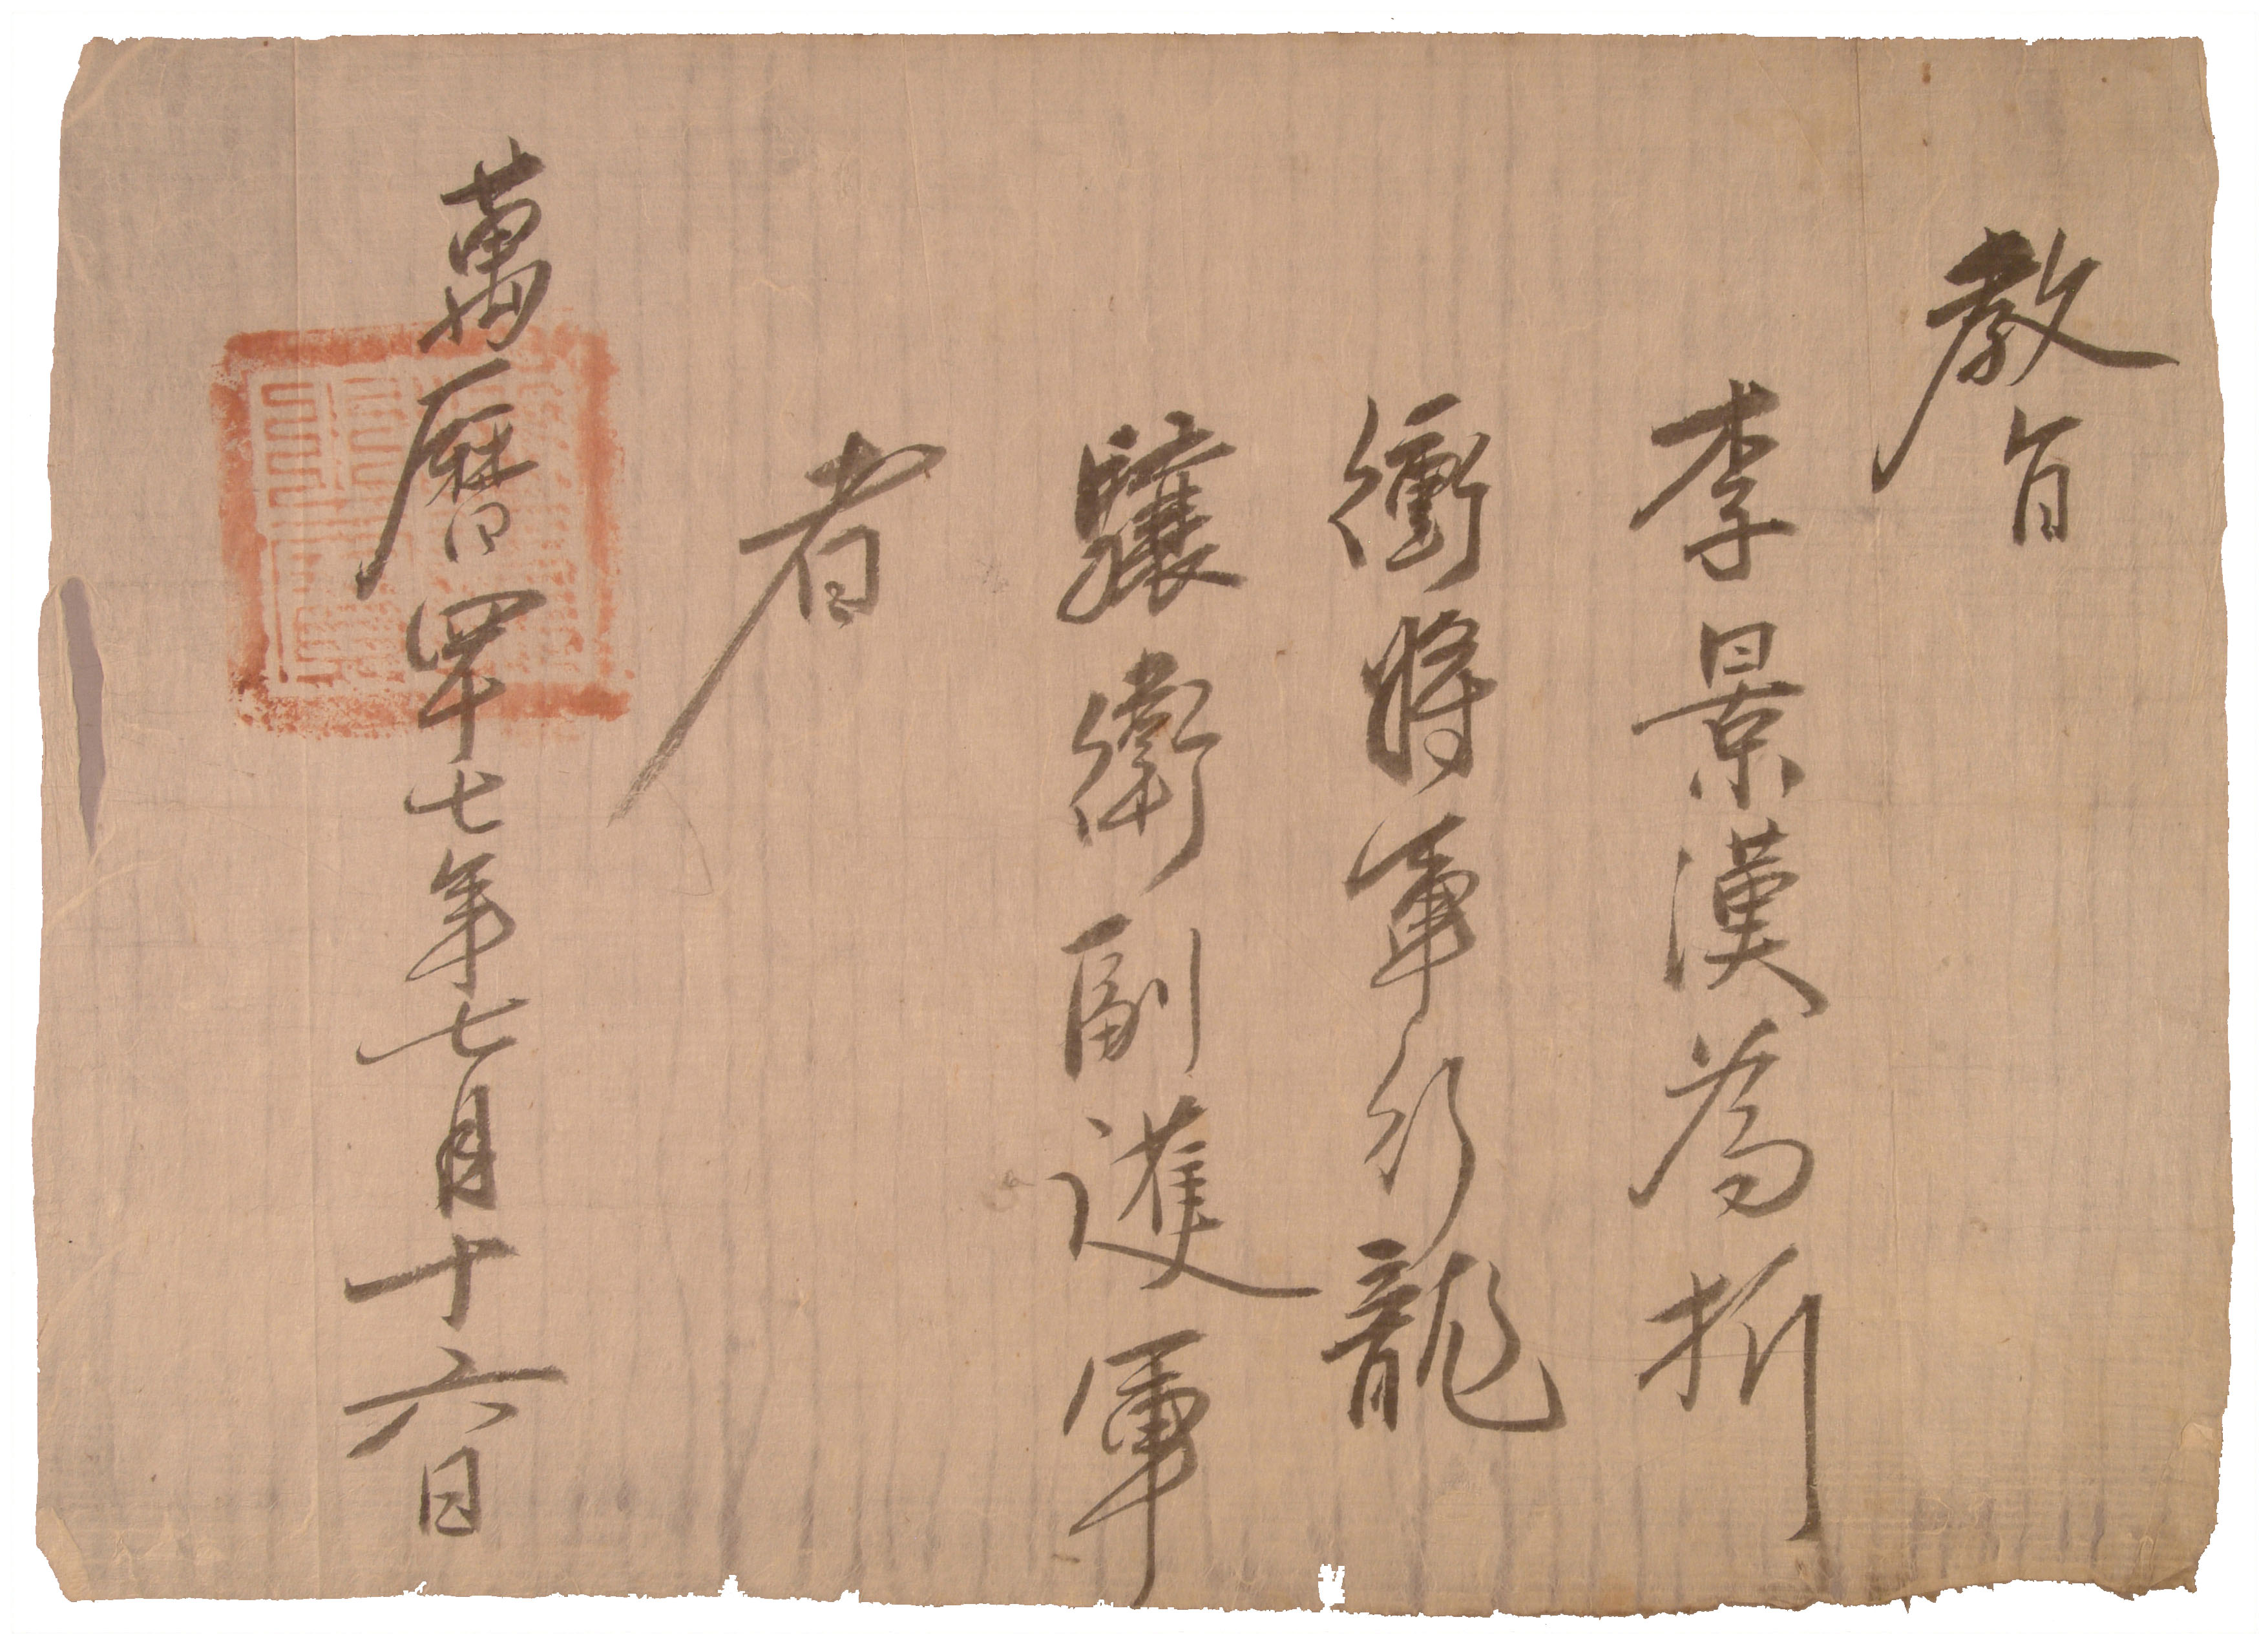 教旨
李景漢為折
衝將軍行龍
驤衛副護軍
者
萬曆四十七年七月十六日